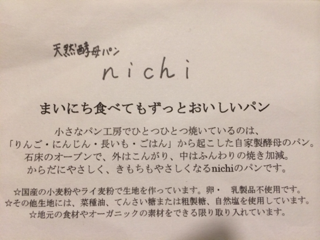 天然酵母パン
nichi
まいにち食べてもずっとおいしいパン
小さなパン工房でひとつひとつ焼いているのは、
「りんご・にんじん・長いも・ごはん」から起こした自家製酵母のパン。
石床のオーブンで、外はこんがり、中はふんわりの焼き加減。
からだにやさしく、きもちもやさしくなるnichiのパンです。
☆国産の小麦粉やライ麦粉で生地を作っています。卵・ 乳製品不使用です。
☆その他生地には、菜種油、てんさい糖または粗製糖、自然塩を使用しています。
☆地元の食材やオーガニックの素材をできる限り取り入れています。